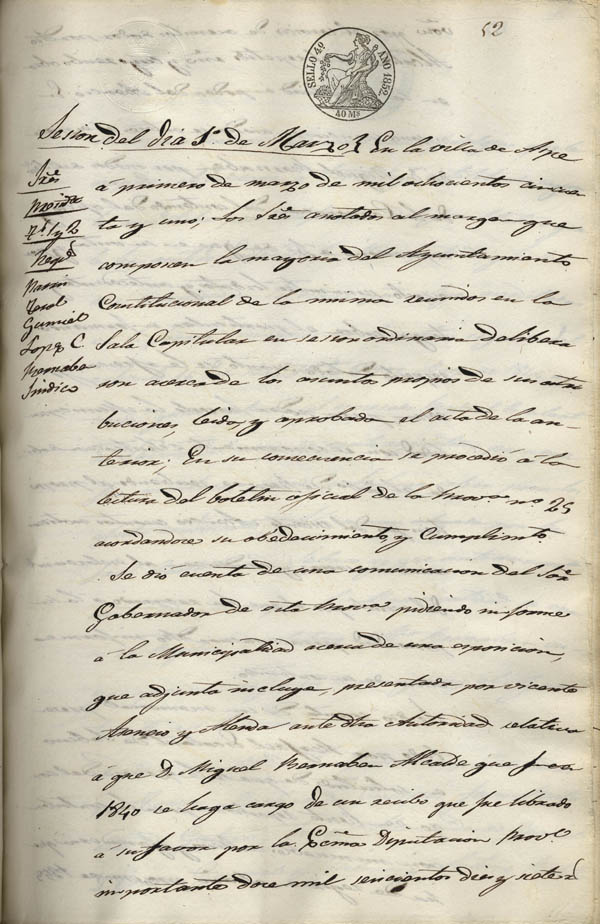 52
SELLO 4º AÑO 1852.
40 Ms
Sesion del dia 1º de Marzo } En la villa de Aspe
á primero de marzo de mil ochocientos cincuen
ta y uno; los Sres anotados al margen que
componen la mayoria del Ayuntamiento
Constitucional de la misma reunidos en la
Sala Capitular en sesion ordinaria delibera
ron acerca de los asuntos propios de sus atri
buciones, leido, y aprobado el acta de la an-
terior; En su consecuencia se procedió á la
lectura del boletin oficial de la Prova nº 25
acordandose su obedecimiento, y Cumplimto.
Se dió cuenta de una comunicacion del Sor
Gobernador de esta Prova pidiendo informe
á la Municipalidad acerca de una esposicion,
que adjunta incluye, presentada por Vicente
Asencio y Merida ante dha Autoridad relativa
á que D. Miguel Bernabeu Alcalde que fue en
1840 se haga cargo de un recibo que fue librado
á su favor por la Ecsma Diputacion Prova
importante doce mil seiscientos dies y siete rs
Sres
Presidte
Ts 1 y 2
Regs
Pavia
Terol
Gumiel
Lopez C.
Bernabe
Sindico